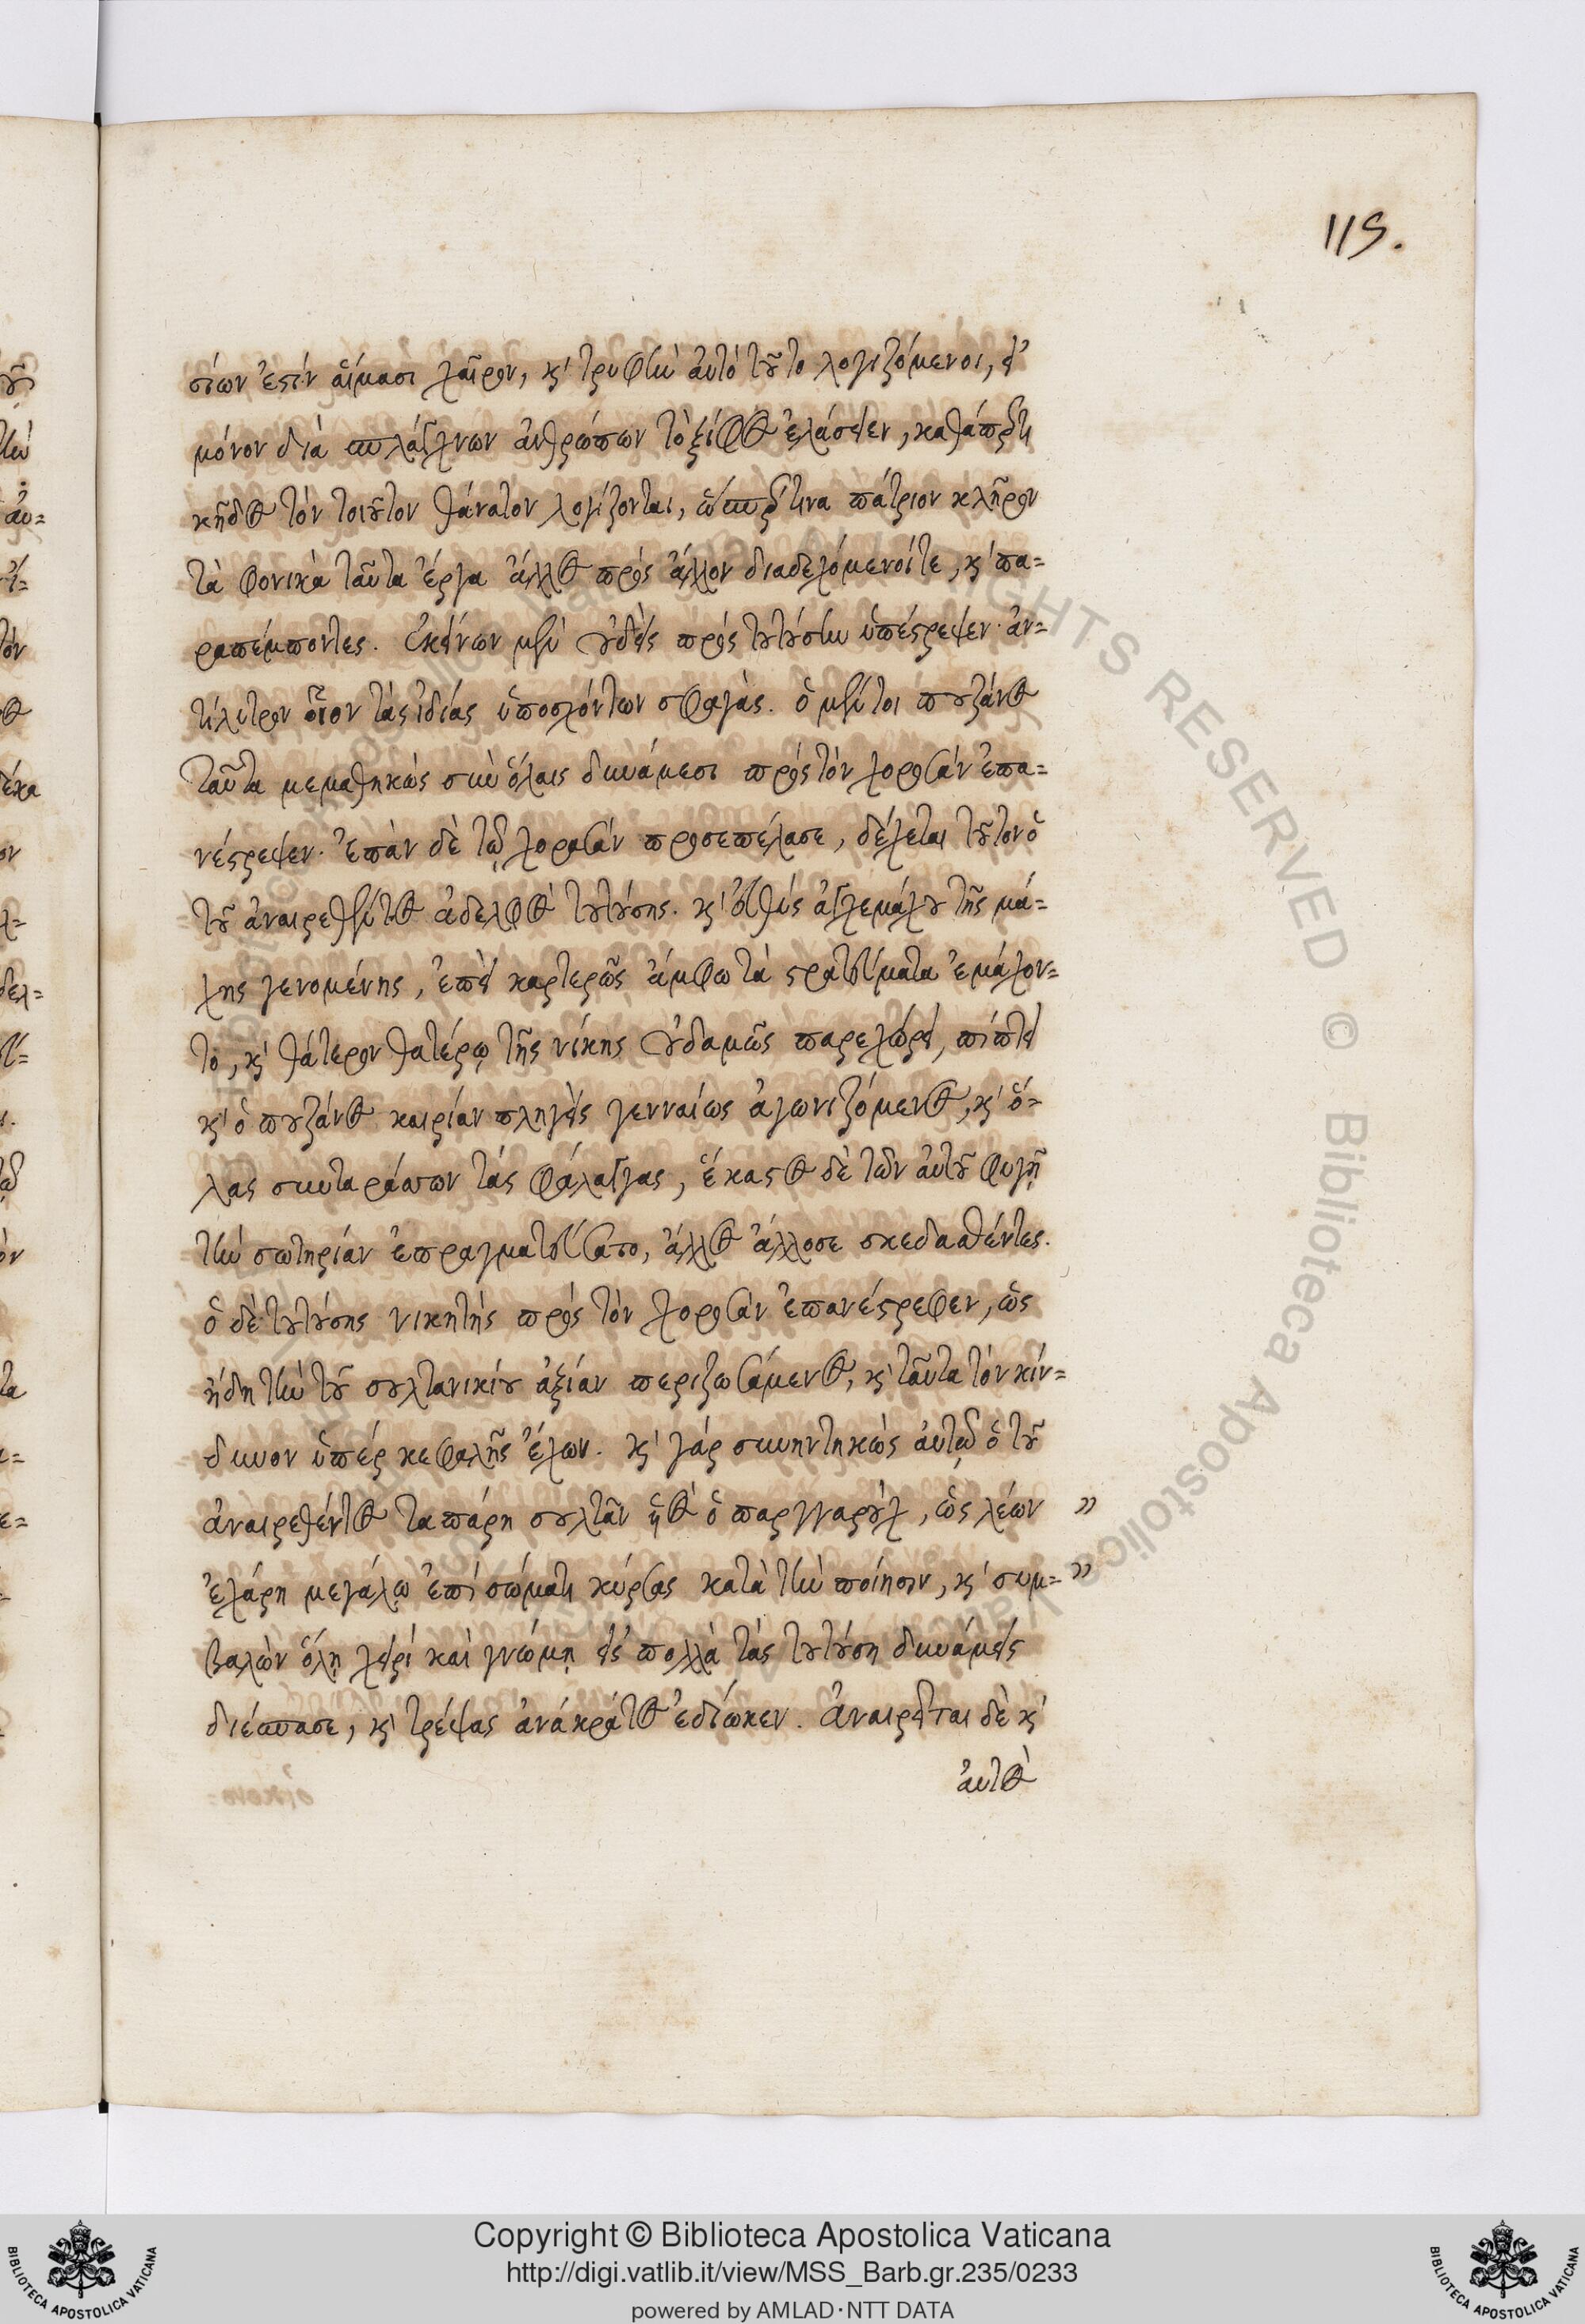 115.
σίων ἐστὶν αἵμασι χαῖρον, κ̀ τρυφὴν αὐτὸ τοῦτο λογιζόμενοι, εἰ
μόνον διὰ σπλάγχνων ἀνθρώπων τὸ ξίφος ἐλάσειεν, καθάπερ τι
κῆδος τὸν τοιοῦτον θάνατον λογίζονται, ὥσπερ τινα πάτριον κλῆρον
τὰ φονικὰ ταῦτα ἔργα ἄλλος πρὸς ἄλλον διαδεχόμενοί τε, κ̀ πα=
ραπέμποντες. ἐκείνων μὲν οὐδεὶς πρὸς τουτούσην ὑπέστρεψεν· ἀν=
τίλυτρον οἷον τὰς ἰδίας ὑποσχόντων σφαγάς. ὁ μέντοι πουζάνος
ταῦτα μεμαθηκὼς σὺν ὅλαις δυνάμεσι πρὸς τὸν χοροσὰν ἐπα=
νέστρεψεν· ἐπὰν δὲ τῷ χοροσὰν προσεπέλασε, δέχεται τοῦτον ὁ
τοῦ ἀναιρεθέντος ἀδελφὸς τουτούσης. κ̀ εὐθὺς ἀγχεμάχου τῆς μά=
χης γενομένης, ἐπεὶ καρτερῶς ἄμφω τὰ στρατεύματα ἐμάχον=
το, κ̀ θάτερον θατέρῳ τῆς νίκης οὐδαμῶς παρεχώρει, πίπτει
κ̀ ὁ πουζάνος καιρίαν πληγεὶς γενναίως ἀγωνιζόμενος, κ̀ ὅ=
λας συνταράσσων τὰς φάλαγγας, ἕκαστος δὲ τῶν αὐτοῦ φυγῇ
τὴν σωτηρίαν ἐπραγματεύσατο, ἄλλος ἄλλοσε σκεδασθέντες.
ὁ δὲ τουτούσης νικητὴς πρὸς τὸν χοροσὰν ἐπανέστρεφεν, ὡς
ἤδη τὴν τοῦ σουλτανικίου ἀξίαν περιζωσάμενος, κ̀ ταῦτα τὸν κίν=
δυνον ὑπὲρ κεφαλῆς ἔχων. κ̀ γὰρ συνηντηκὼς αὐτῷ ὁ τοῦ
ἀναιρεθέντος ταπάρη σουλτὰν υἱὸς ὁ παργγιαροὺχ, ὡς λέων »
ἐχάρη μεγάλῳ ἐπὶ σώματι κύρσας κατὰ τὴν ποίησιν, κ̀ συμ= »
βαλὼν ὅλῃ χειρὶ καὶ γνώμῃ εἰς πολλὰ τὰς τουτούση δυνάμεις
διέσπασε, κ̀ τρέψας ἀνὰ κράτος ἐδίωκεν. ἀναιρεῖται δὲ κ̀
αὐτὸς
Copyright © Biblioteca Apostolica Vaticana
http://digi.vatlib.it/view/MSS_Barb.gr.235/0233
powered by AMLAD·NTT DATA